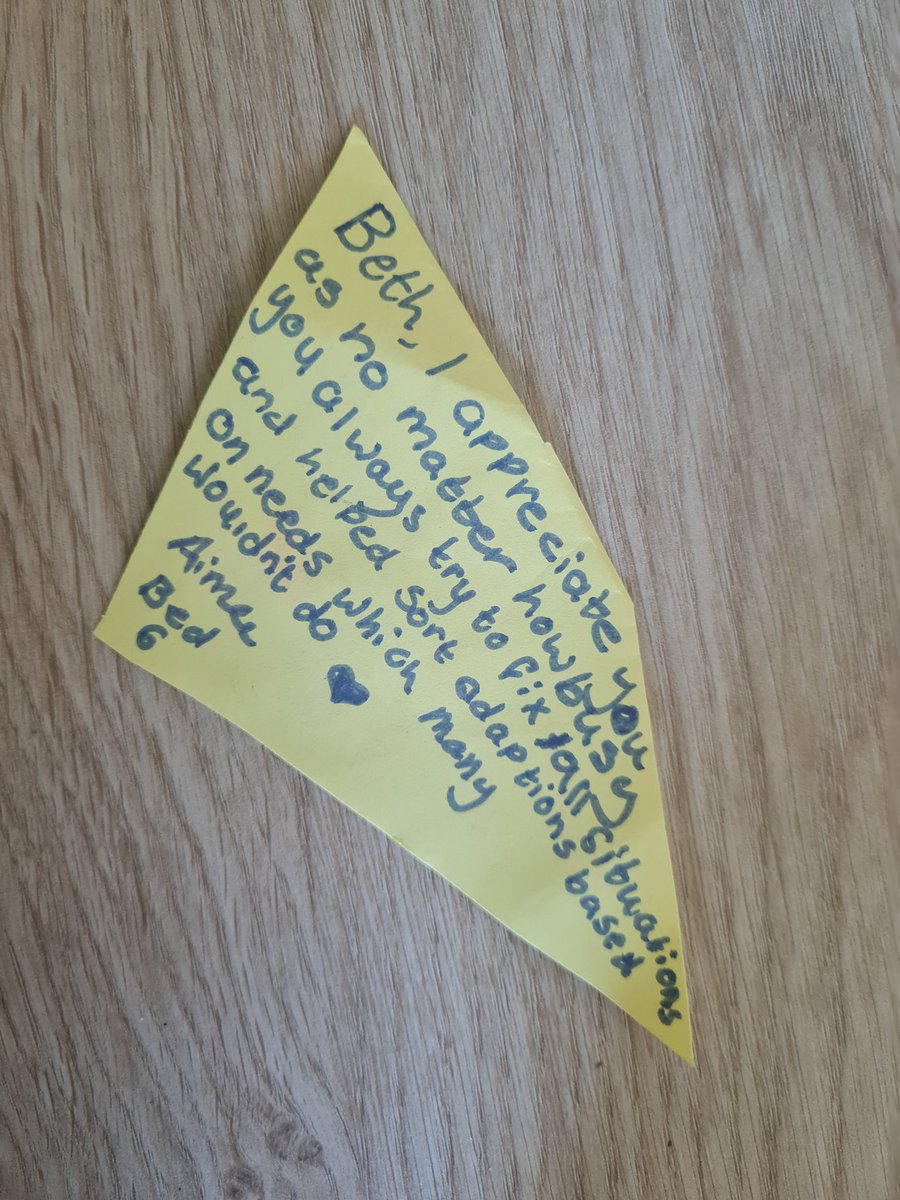 Beth, I appreciate you
as no matter how busy
you always try to fix all situations
and helped sort adaptions based
on needs which many
wouldn't do ♥
Aimee
Bed
6